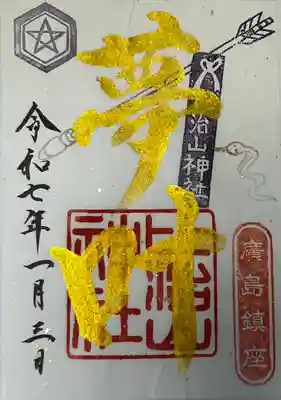 夢叶
比治山神社
廣島鎮座
比治山神社
令和七年一月三日